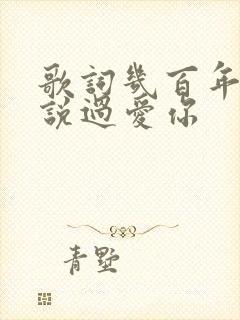 歌詞幾百年
說過愛你
青墅